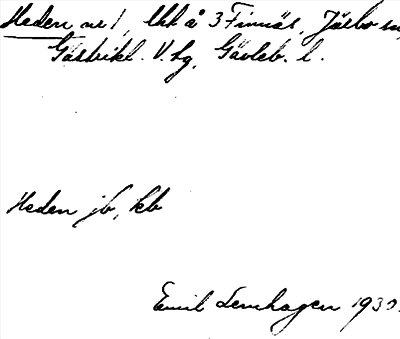 Heden nr 1, lht å 3 Finnäs, Järbo sn,
Gästrikl. V. tg, Gävleb. l.
Heden jb, kb
Emil Lenhagen 1930.